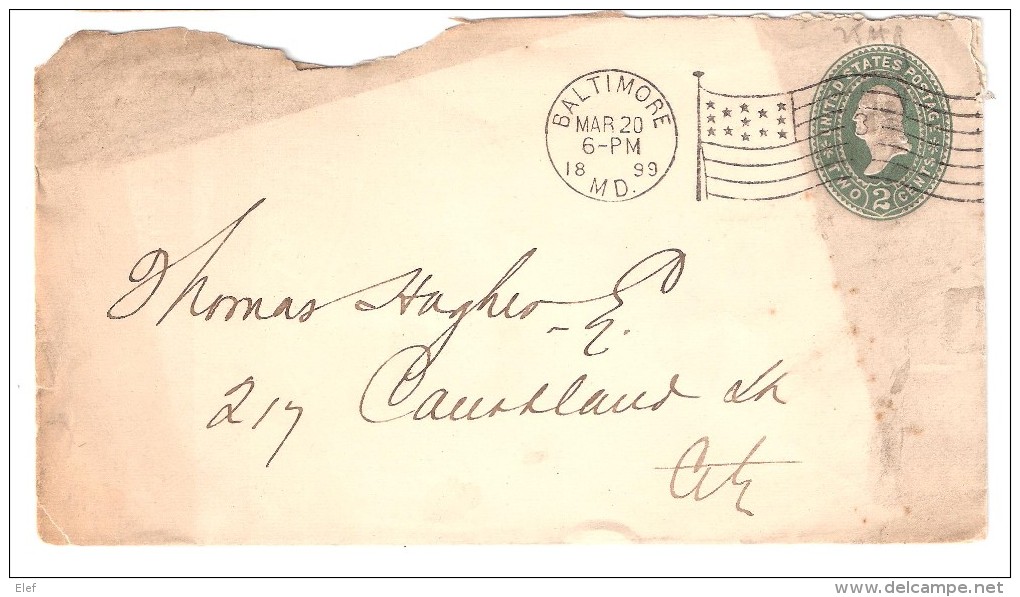 BALTIMORE
MAR 20
6-PM
18 99
MD.
UNITED STATES POSTAGE
TWO 2 CENTS
Thomas Hughes E
217 Courtland St
City
Elef
delcampe.net